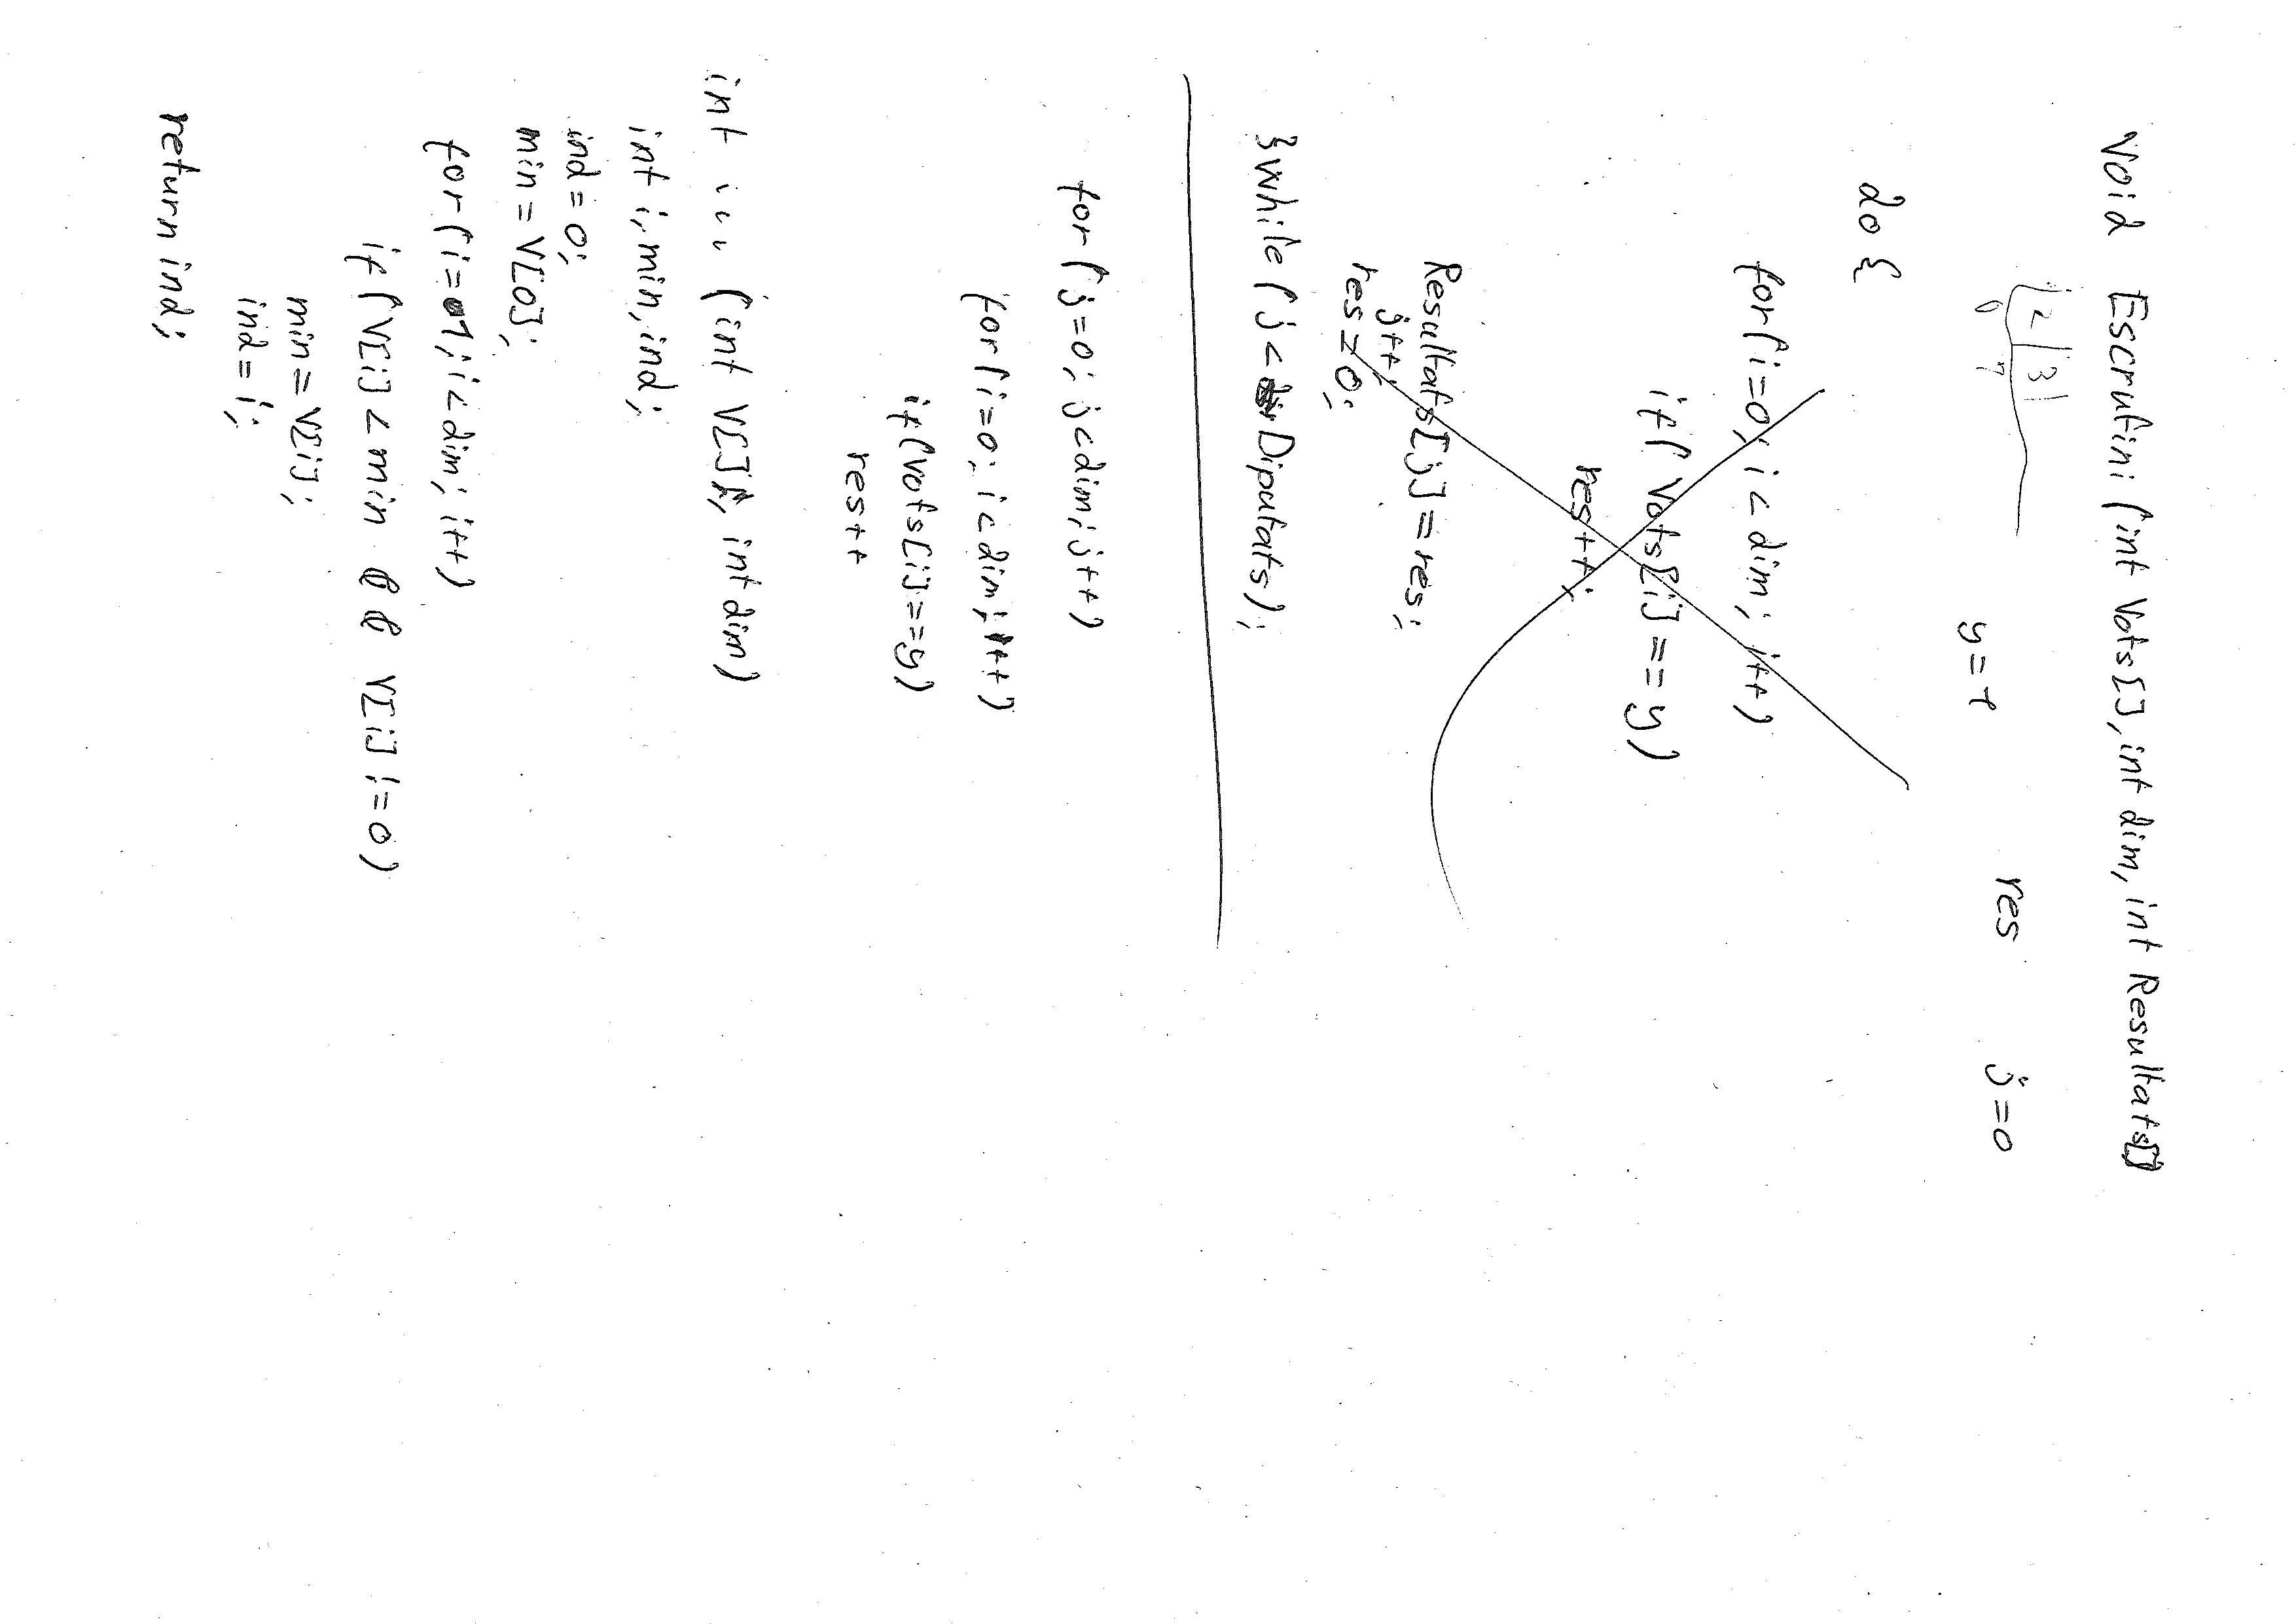 Void Escrutini (int Vots[], int dim, int Resultats[])
2 | 3 |
0 1
y=1 res j=0
do {
for(i=0; i < dim; i++)
if( Vots[i] == y)
res++;
Resultats[j] = res;
j++;
res = 0;
}while (j < Diputats);
for (j=0; j<dim; j++)
for (i=0; i<dim; i++)
if(Vots[i]==y)
res++
int ... (int V[], int dim)
int i, min, ind;
ind = 0;
min = V[0];
for(i=1; i<dim; i++)
if (V[i] < min && V[i] != 0)
min = V[i];
ind = i;
return ind;